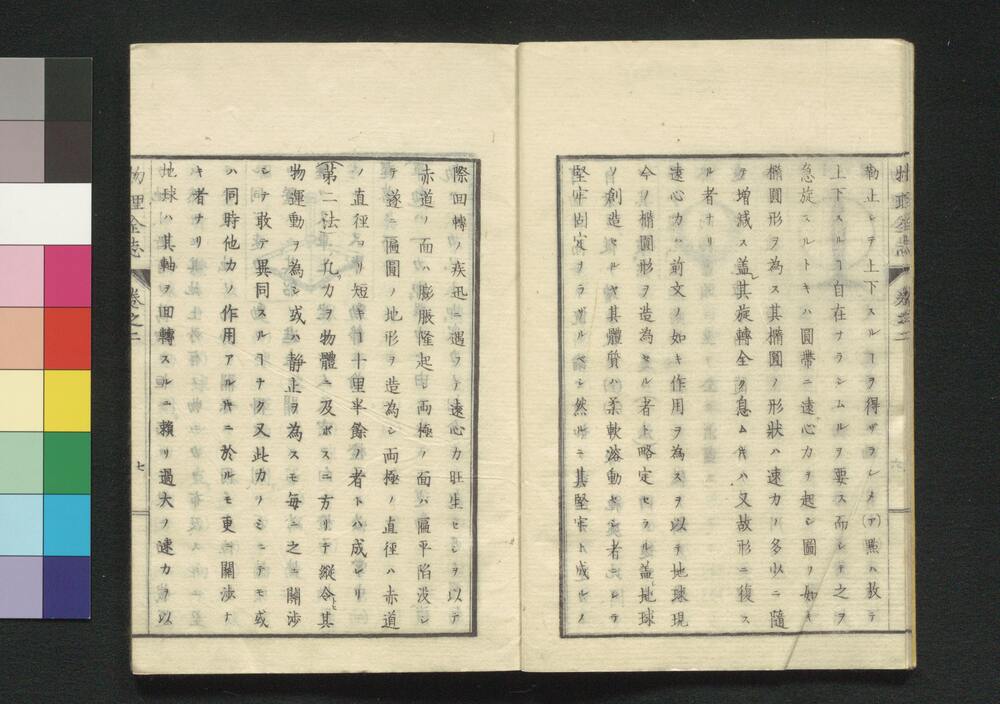 物理全志 卷之二 六
動止シヲ上下スルヿヲ得ザラシメ(ア)點ハ敎テ
上下スルヿ自在ナラシムルヲ要ス而シテ之ヲ
急旋スルトキハ圓帶ニ遠心力ヲ起シ圖ノ如キ
橢圓形ヲ為ス其橢圓ノ形狀ハ速力ノ多少ニ隨
テ增減ス蓋シ其旋轉全ク息ムキハ又故形ニ復ス
ル者ナリ
遠心力ハ前文ノ如キ作用ヲ為スヲ以テ地球現
今ノ橢圓形ヲ造為セル者ト略定セラル蓋シ地球
ノ創造セルヤ其體質ハ柔軟滋動セシ者ニシテ
堅牢固定ナラザルベシ然ルニ其堅牢ト成ルノ
際回轉ノ疾迅ニ遇フテ遠心力旺生セシヲ以テ
赤道ノ面ハ膨脹隆起シ両極ノ面ハ匾平陷沒シ
テ遂ニ匾圓ノ地形ヲ造為シ両極ノ直徑ハ赤道
ノ直徑ヨリ短キヿ十里半餘ノ者トハ成セリ
第二法 凡ソ力ヲ物體ニ及ボスニ方リテ縱令ヒ其
物運動ヲ為シ或ハ静止ヲ為スモ毎ニ之ニ關渉
シテ敢テ異同スルヿナク又此力ノミニテモ或
ハ同時他力ノ作用アルキニ於ルモ更ニ關渉ナ
キ者ナリ
地球ハ其軸ヲ回轉スルニ賴リ過大ノ速力ヲ以
物理全志 卷之二 七